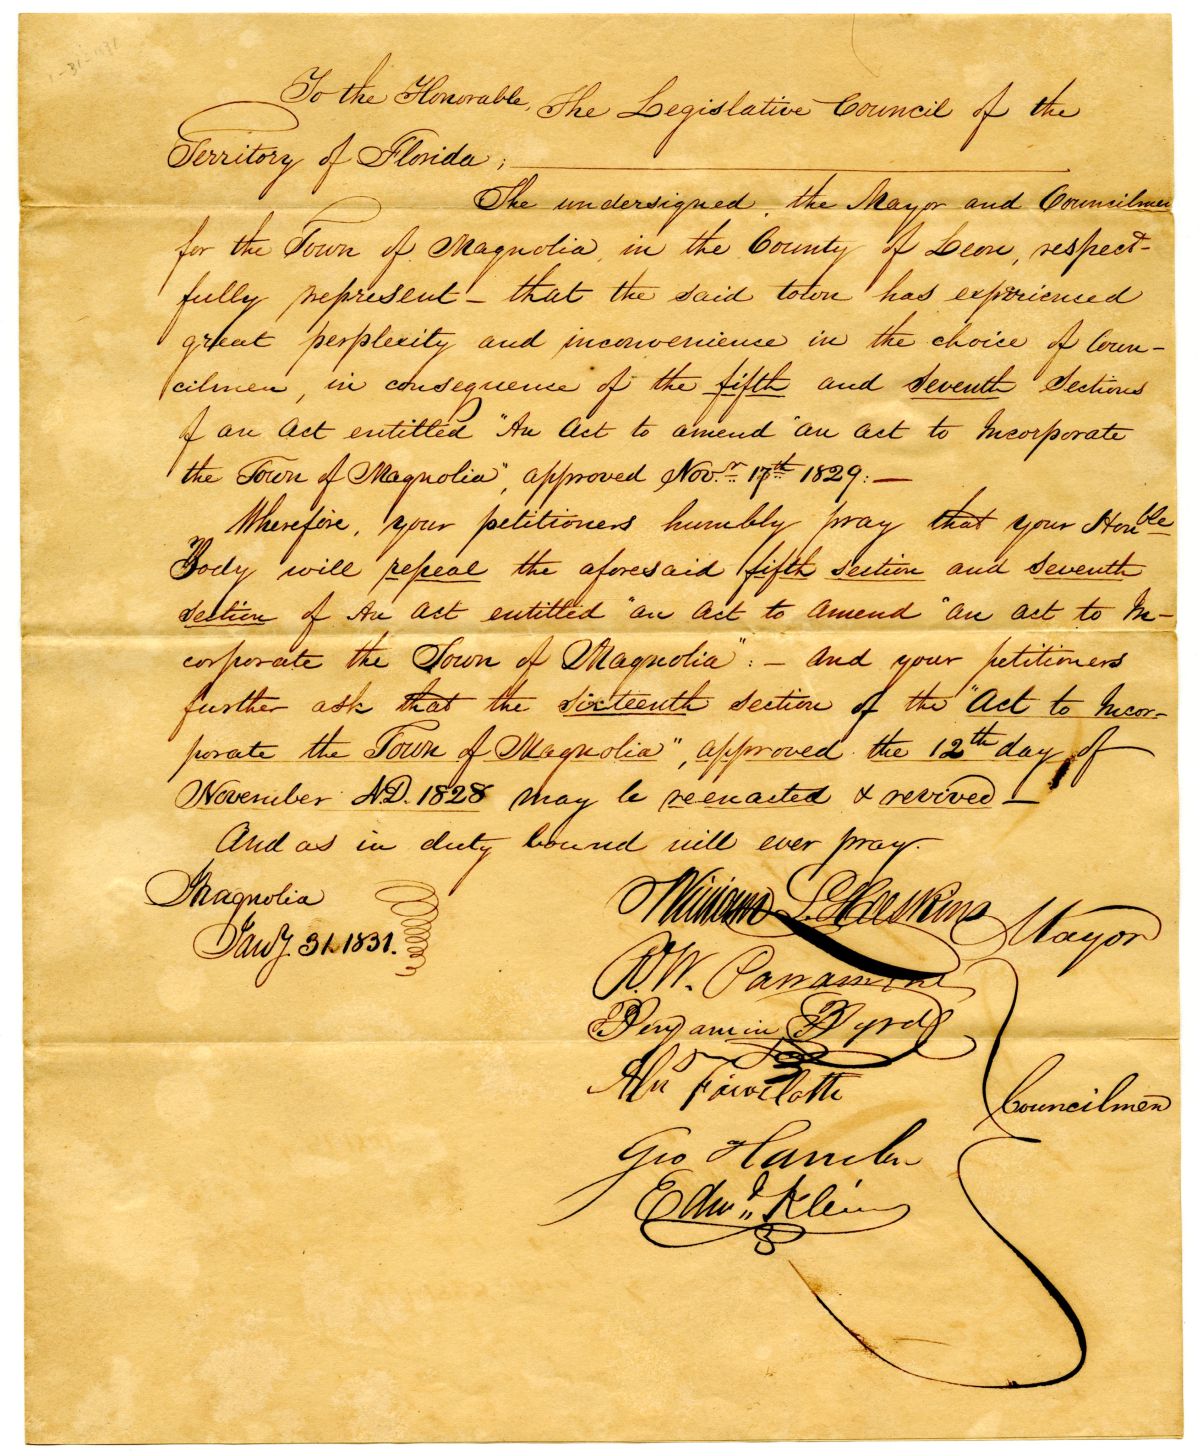 1-31-1831
To the Honorable, The Legislative Council of the
Territory of Florida;
The undersigned, the Mayor and Councilmen
for the Town of Magnolia, in the County of Leon, respect-
fully represent - that the said town has experienced
great perplexity and inconvenience in the choice of Coun-
cilmen, in consequence of the fifth and seventh Sections
of an Act entitled "An Act to amend "an act to Incorporate
the Town of Magnolia", approved Nov.r 17th 1829: —
Wherefore, your petitioners humbly pray that your Honble
Body will repeal the aforesaid fifth section and seventh
section of An Act entitled "an Act to Amend "an act to In-
corporate the Town of Magnolia": - And your petitioners
further ask that the sixteenth section of the "Act to Incor-
porate the Town of Magnolia", approved the 12th day of
November A.D. 1828 may be reenacted & revived —
And as in duty bound will ever pray.
Magnolia
Jany. 31. 1831.
William L. Haskins Mayor
R.W. Parramore
Benjamin Byrd
Councilmen
Geo Hamlin
Edwd Klein